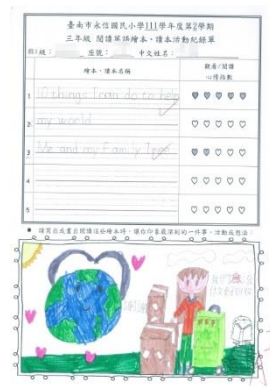 臺南市永信國民小學111學年度第2學期
三年級 閱讀英語繪本、讀本活動紀錄單
班級： 座號： 中文姓名：
繪本、讀本名稱
觀看/閱讀
心得指數
1 10 things I can do to help
2 my world
3 Me and my Family Tree
4
5
● 請寫出或畫出閱讀這些繪本時，讓你印象最深刻的一件事、活動或想法：
謝謝